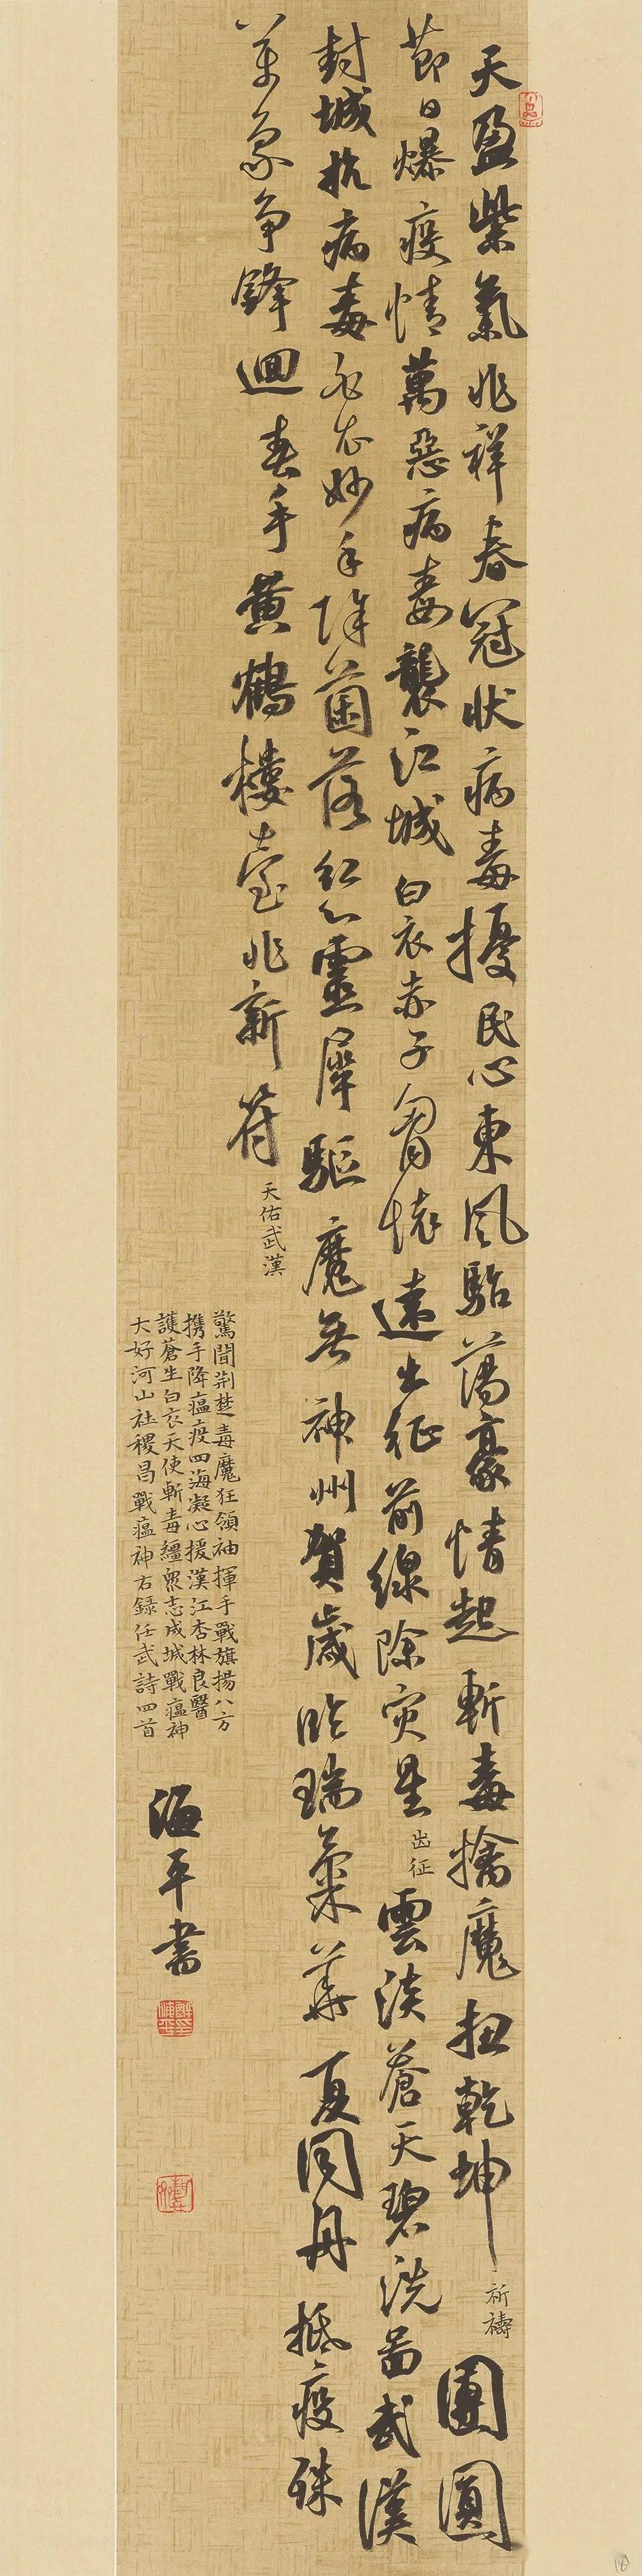 天盈紫氣兆祥春冠狀病毒擾民心東風駘蕩豪情起斬毒擒魔扭乾坤 祈禱 團圓
節日爆疫情萬惡病毒襲江城白衣赤子胸懷遠出征前線除灾星 出征 雲淡蒼天碧洗武漢
封城抗病毒妙手除菌落紅心靈犀驅魔云神州賀歲臨瑞氣華夏同舟抵疫殊
萬象争鋒迴春手黄鶴樓臺兆新符 天佑武漢
驚聞荆楚毒魔狂領袖揮手戰旗揚八方
携手降瘟疫四海凝心援漢江杏林良醫
護蒼生白衣天使斬毒繮眾志成城戰瘟神
大好河山社稷昌 戰瘟神 右録任武詩四首
海平書